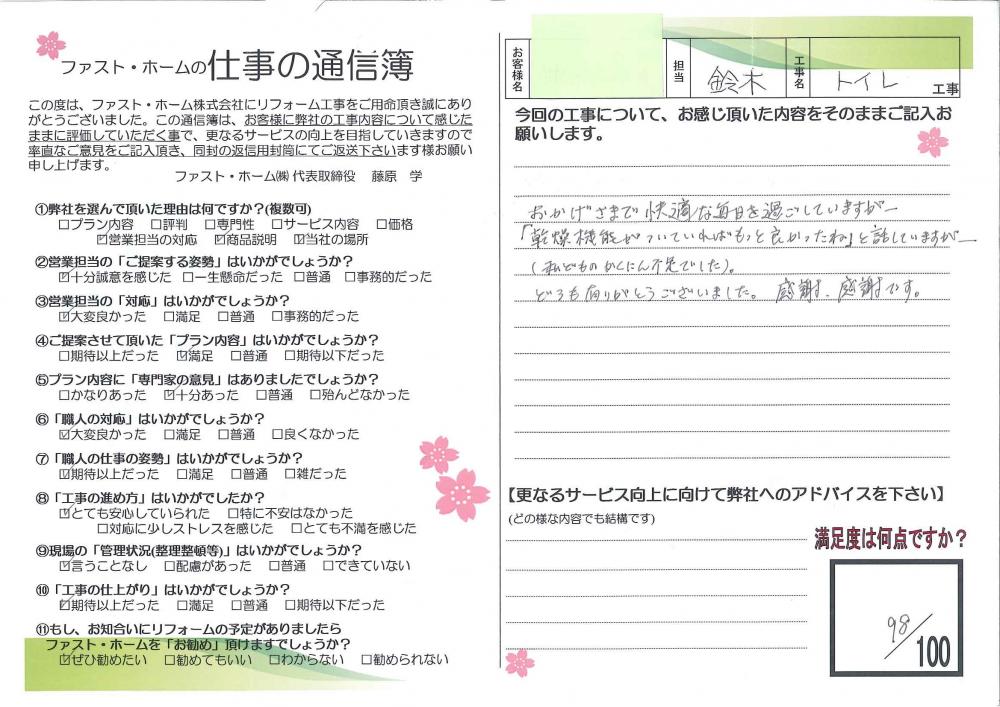 ファスト・ホームの仕事の通信簿
この度は、ファスト・ホーム株式会社にリフォーム工事をご用命頂き誠にあり
がとうございました。この通信簿は、お客様に弊社の工事内容について感じた
ままに評価していただく事で、更なるサービスの向上を目指していきますので
率直なご意見をご記入頂き、同封の返信用封筒にてご返送下さいます様お願い
申し上げます。
ファスト・ホーム㈱ 代表取締役 藤原 学
①弊社を選んで頂いた理由は何ですか?(複数可)
□プラン内容 □評判 □専門性 □サービス内容 □価格
☑営業担当の対応 ☑商品説明 ☑当社の場所
②営業担当の「ご提案する姿勢」はいかがでしょうか?
☑十分誠意を感じた □一生懸命だった □普通 □事務的だった
③営業担当の「対応」はいかがでしょうか?
☑大変良かった □満足 □普通 □事務的だった
④ご提案させて頂いた「プラン内容」はいかがでしょうか?
□期待以上だった ☑満足 □普通 □期待以下だった
⑤プラン内容に「専門家の意見」はありましたでしょうか?
□かなりあった ☑十分あった □普通 □殆んどなかった
⑥「職人の対応」はいかがでしょうか?
☑大変良かった □満足 □普通 □良くなかった
⑦「職人の仕事の姿勢」はいかがでしょうか?
☑期待以上だった □満足 □普通 □雑だった
⑧「工事の進め方」はいかがでしたか?
☑とても安心していられた □特に不安はなかった
□対応に少しストレスを感じた □とても不満を感じた
⑨現場の「管理状況(整理整頓等)」はいかがでしょうか?
☑言うことなし □配慮があった □普通 □できていない
⑩「工事の仕上がり」はいかがでしょうか?
☑期待以上だった □満足 □普通 □期待以下だった
⑪もし、お知合いにリフォームの予定がありましたら
ファスト・ホームを「お勧め」頂けますでしょうか?
☑ぜひ勧めたい □勧めてもいい □わからない □勧められない
お客様名 担当 鈴木 工事名 トイレ 工事
今回の工事について、お感じ頂いた内容をそのままご記入お
願いします。
おかげさまで快適な毎日を過ごしていますが―
「乾燥機能がついていればもっと良かったね」と話していますが―
(私どものかくにん不足でした)。
どうも有りがとうございました。感謝、感謝です。
【更なるサービス向上に向けて弊社へのアドバイスを下さい】
(どの様な内容でも結構です)
満足度は何点ですか?
98/100